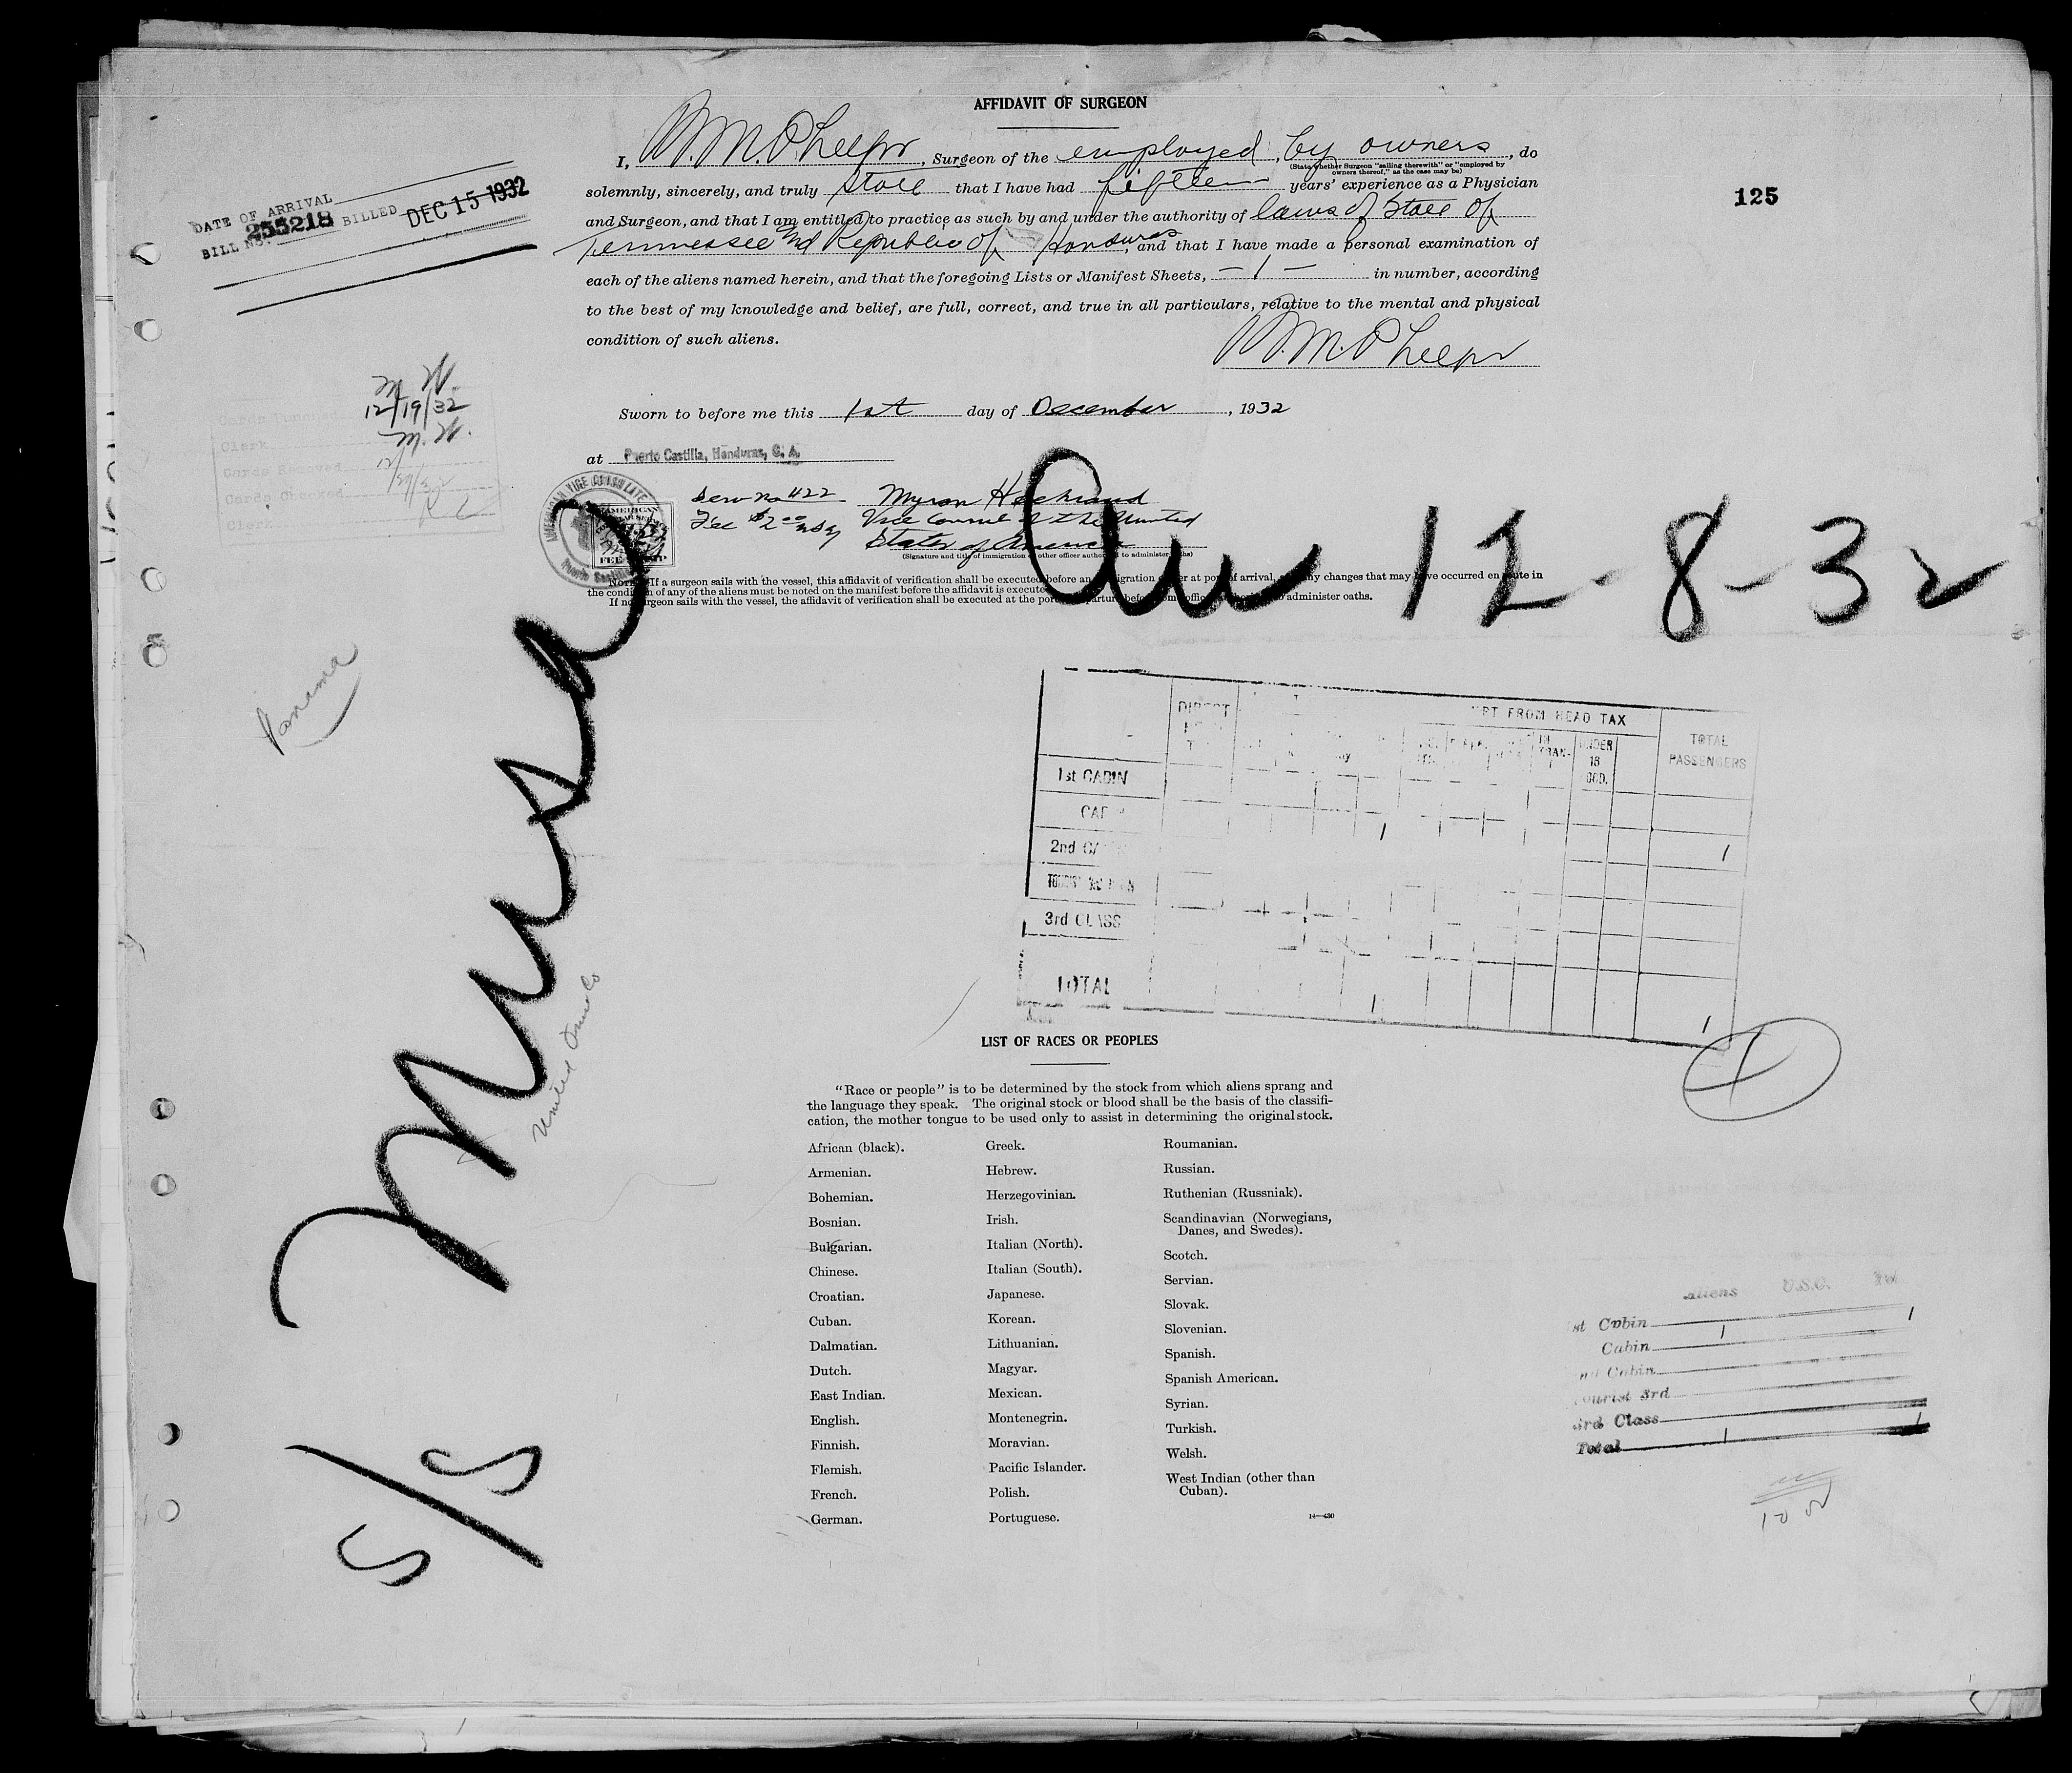 AFFIDAVIT OF SURGEON
I, W. M. Phelps, Surgeon of the employed, by owners, do
(State whether Surgeon "sailing therewith" or "employed by owners thereof," as the case may be)
solemnly, sincerely, and truly state that I have had fifteen years' experience as a Physician
and Surgeon, and that I am entitled to practice as such by and under the authority of laws of State of
Tennessee and Republic of Honduras, and that I have made a personal examination of
each of the aliens named herein, and that the foregoing Lists or Manifest Sheets, - 1 - in number, according
to the best of my knowledge and belief, are full, correct, and true in all particulars, relative to the mental and physical
condition of such aliens.
W. M. Phelps
125
DATE OF ARRIVAL
BILL NO. 255218 BILLED DEC 15 1932
Cards Punched
12/19/32
Clerk
M. H.
Cards Checked
Clerk
Sworn to before me this 1st day of December, 1932
at Puerto Castilla, Honduras, C. A.
Serv no 422
Fee $2.00
Myron
Vice Consul of the United
States of America
(Signature and title of immigration or other officer authorized to administer oaths)
AMERICAN VICE CONSULATE
AMERICAN
FEE STAMP
NOTE.—If a surgeon sails with the vessel, this affidavit of verification shall be executed before an immigration officer at port of arrival, and any changes that may have occurred en route in
the condition of any of the aliens must be noted on the manifest before the affidavit is executed.
If no surgeon sails with the vessel, the affidavit of verification shall be executed at the port of departure before some officer authorized to administer oaths.
Arr 12-8-32
Panama
S/S Musa
United Fruit Co
DIRECT
EXEMPT FROM HEAD TAX
TOTAL PASSENGERS
IN TRAN-
UNDER 16
1st CABIN
CABIN
1
2nd CABIN
1
TOURIST 3rd
3rd CLASS
TOTAL
1
1
1
LIST OF RACES OR PEOPLES
"Race or people" is to be determined by the stock from which aliens sprang and
the language they speak. The original stock or blood shall be the basis of the classifi-
cation, the mother tongue to be used only to assist in determining the original stock.
African (black).
Armenian.
Bohemian.
Bosnian.
Bulgarian.
Chinese.
Croatian.
Cuban.
Dalmatian.
Dutch.
East Indian.
English.
Finnish.
Flemish.
French.
German.
Greek.
Hebrew.
Herzegovinian.
Irish.
Italian (North).
Italian (South).
Japanese.
Korean.
Lithuanian.
Magyar.
Mexican.
Montenegrin.
Moravian.
Pacific Islander.
Polish.
Portuguese.
Roumanian.
Russian.
Ruthenian (Russniak).
Scandinavian (Norwegians,
Danes, and Swedes).
Scotch.
Servian.
Slovak.
Slovenian.
Spanish.
Spanish American.
Syrian.
Turkish.
Welsh.
West Indian (other than
Cuban).
14—430
Aliens U.S.C.
st Cabin 1
Cabin 1
nd Cabin
ourist 3rd
3rd Class
Total 1 1